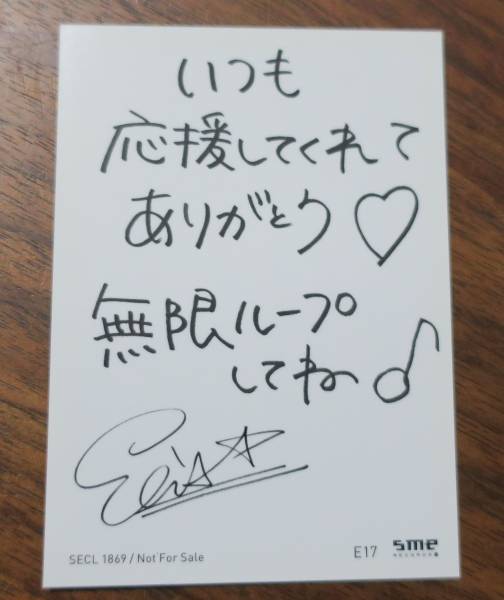 いつも
応援してくれて
ありがとう♡
無限ループ
してね♪
SECL 1869 / Not For Sale
E17
sme
RECORDS